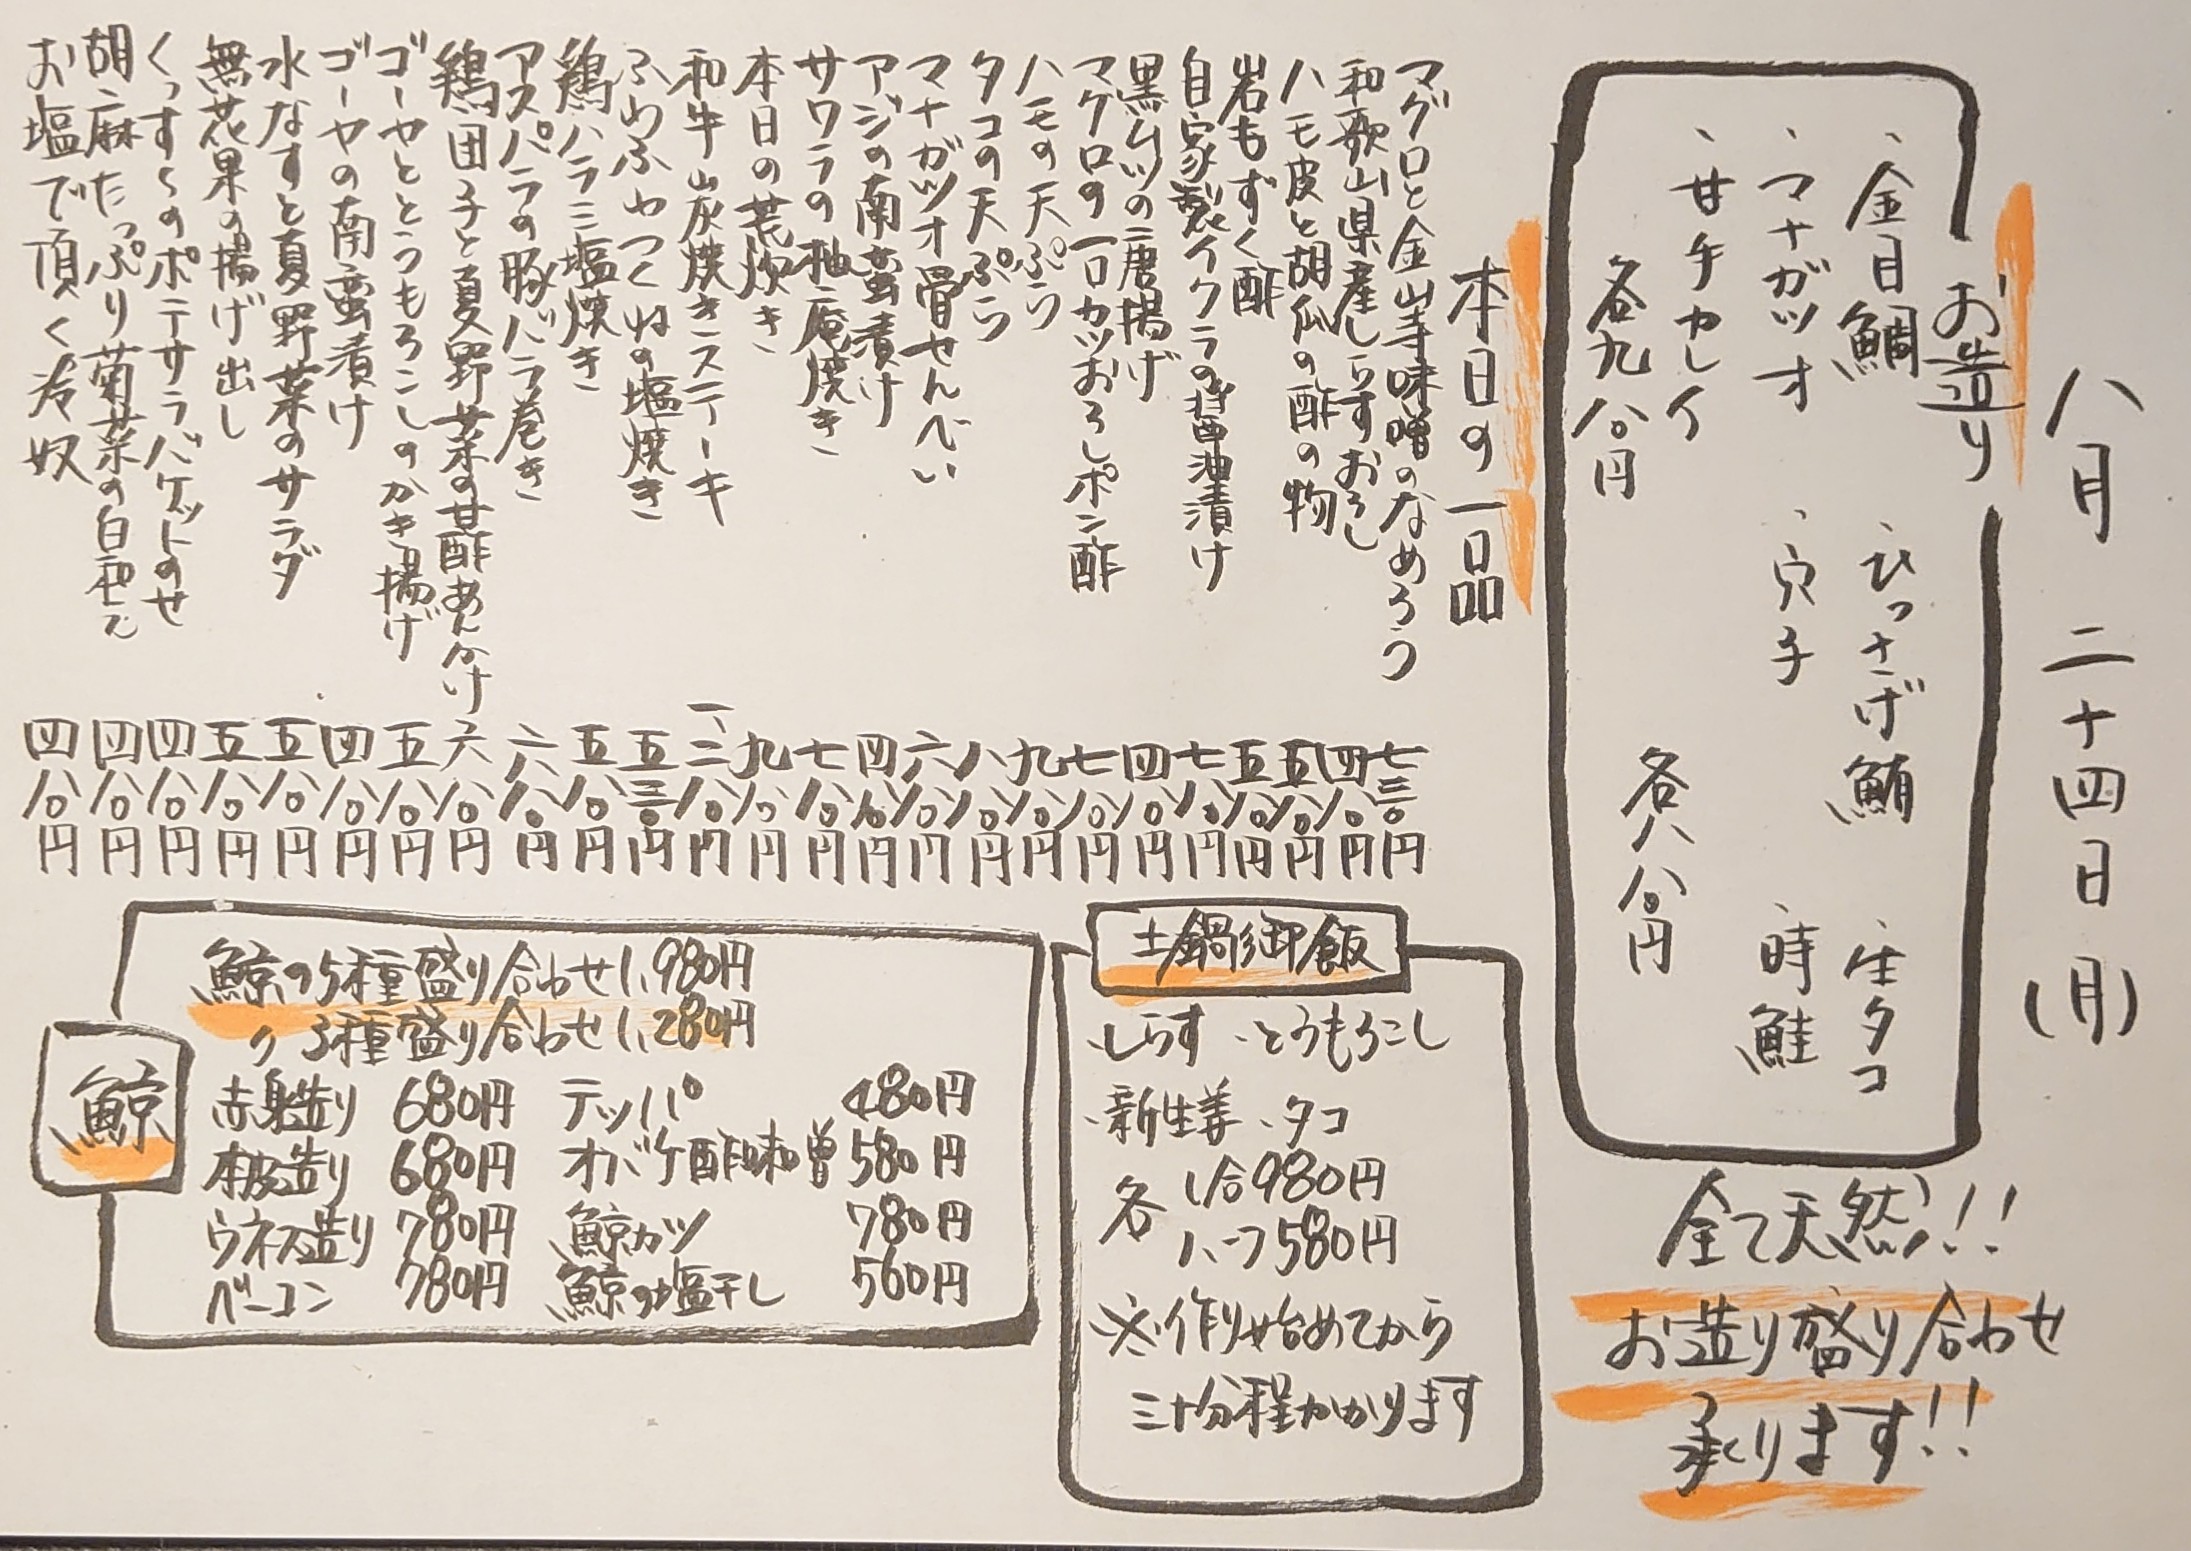 八月二十四日(月)
お造り
、金目鯛 、ひっさげ鮪 、生タコ
、マナガツオ 、穴子 、時鮭
、甘手カレイ
各九八〇円 各八八〇円
全て天然!!
お造り盛り合わせ
承ります!!
本日の一品
マグロと金山寺味噌のなめろう 七三〇円
和歌山県産しらすおろし 四八〇円
ハモ皮と胡瓜の酢の物 五八〇円
岩もずく酢 五八〇円
自家製イクラの醤油漬け 七八〇円
黒ムツの唐揚げ 四八〇円
マグロの一口カツおろしポン酢 七八〇円
ハモの天ぷら 九八〇円
タコの天ぷら 八八〇円
マナガツオ骨せんべい 六八〇円
アジの南蛮漬け 四八〇円
サワラの柚庵焼き 七八〇円
本日の荒炊き 九八〇円
和牛山灰焼きステーキ 一、二八〇円
ふわふわつくねの塩焼き 五三〇円
鶏ハラミ塩焼き 五八〇円
アスパラの豚バラ巻き 六八〇円
鶏団子と夏野菜の甘酢あんかけ 六八〇円
ゴーヤととうもろこしのかき揚げ 五八〇円
ゴーヤの南蛮漬け 四八〇円
水なすと夏野菜のサラダ 五八〇円
無花果の揚げ出し 五八〇円
くっすんのポテサラバケットのせ 四八〇円
胡麻たっぷり菊菜の白和え 四八〇円
お塩で頂く冷奴 四八〇円
土鍋御飯
、しらす 、とうもろこし
、新生姜 、タコ
各 1合980円
ハーフ580円
※作り始めてから
三十分程かかります
鯨
鯨の5種盛り合わせ1,980円
〃 3種盛り合わせ1,280円
赤身造り 680円 テッパ 480円
本皮造り 680円 オバケ酢味噌 580円
ウネス造り 780円 鯨カツ 780円
ベーコン 780円 鯨の塩干し 560円